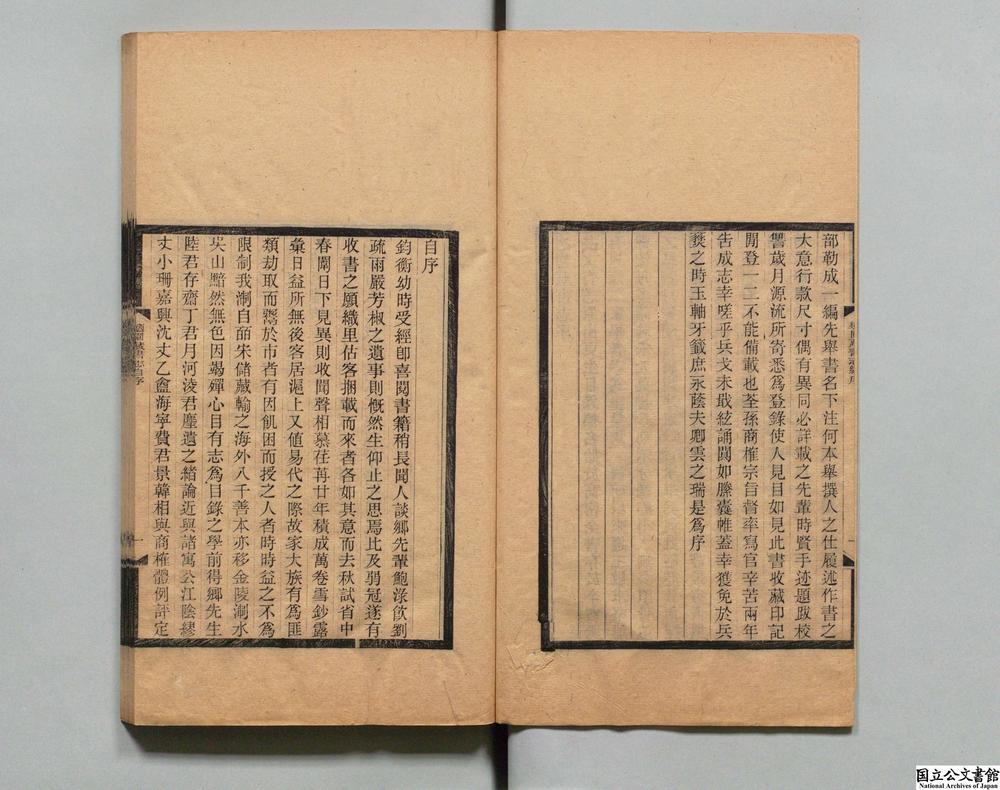 部勒成一編先舉書名下注何本舉撰人之仕履述作書之
大意行款尺寸偶有異同必詳載之先輩時賢手迹題跋校
讐歲月源流所寄悉爲登錄使人見目如見此書收藏印記
閒登一二不能備載也荃孫商榷宗旨督率寫官辛苦兩年
告成志幸嗟乎兵戈未戢絃誦闃如縢囊帷蓋幸獲免於兵
燹之時玉軸牙籤庶永蔭夫卿雲之瑞是爲序
適園藏書志自序
一
自序
鈞衡幼時受經卽喜閱書籍稍長聞人談鄉先輩鮑淥飮劉
疏雨嚴芳椒之遺事則慨然生仰止之思焉比及弱冠遂有
收書之願織里估客捆載而來者各如其意而去秋試省中
春闈日下見異則收聞聲相慕荏苒廿年積成萬卷雪鈔露
彙日益所無後客居滬上又値易代之際故家大族有爲匪
類劫取而鬻於市者有因飢困而授之人者時時益之不爲
限制我淛自皕宋儲藏輸之海外八千善本亦移金陵淛水
吳山黯然無色因竭殫心目有志爲目錄之學前得鄉先生
陸君存齋丁君月河淩君塵遺之緒論近與諸寓公江陰繆
丈小珊嘉興沈丈乙盦海寧費君景韓相與商榷體例評定
国立公文書館
National Archives of Japan